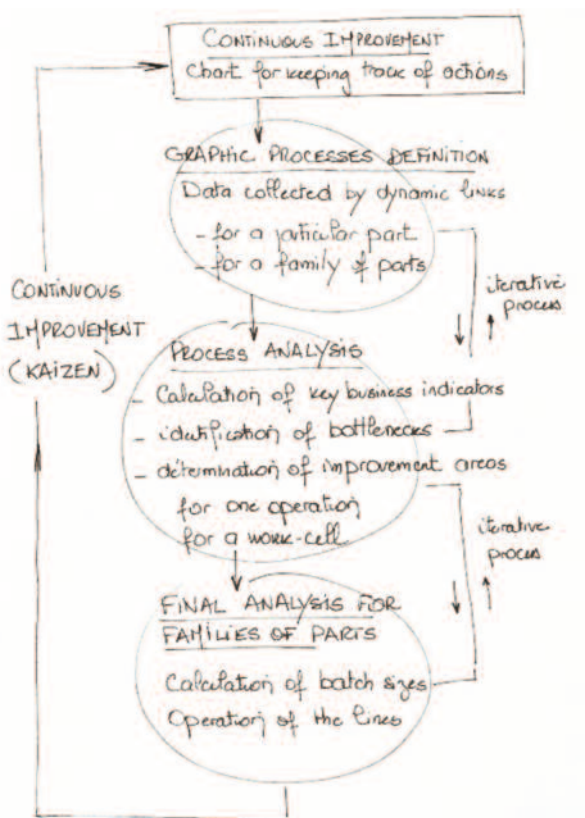 CONTINUOUS IMPROVEMENT
Chart for keeping track of actions
GRAPHIC PROCESSES DEFINITION
Data collected by dynamic links
- for a particular part
- for a family of parts
iterative
proces
CONTINUOUS
IMPROVEMENT
(KAIZEN)
PROCESS ANALYSIS
- Calculation of key business indicators
- identification of bottlenecks
- détermination of improvement areas
for one operation
for a work-cell
iterative
proces
FINAL ANALYSIS FOR
FAMILIES OF PARTS
Calculation of batch sizes
Operation of the lines